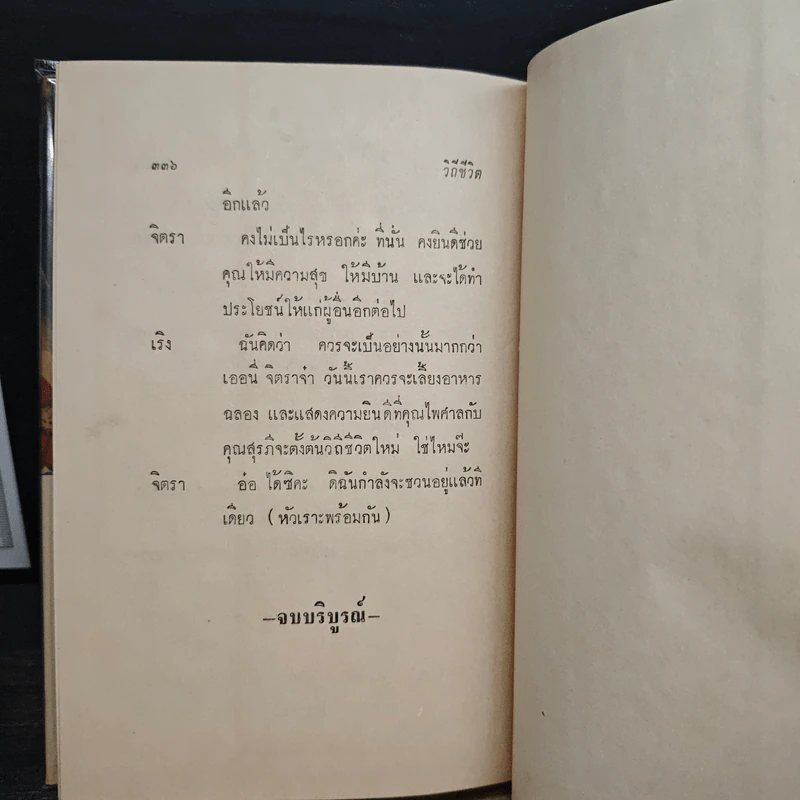 ๓๓๖ วิถีชีวิต
อีกแล้ว
จิตรา คงไม่เป็นไรหรอกค่ะ ที่นั่น คงยินดีช่วย
คุณให้มีความสุข ให้มีบ้าน และจะได้ทำ
ประโยชน์ให้แก่ผู้อื่นอีกต่อไป
เริง ฉันคิดว่า ควรจะเป็นอย่างนั้นมากกว่า
เออนี่ จิตราจ๋า วันนี้เราควรจะเลี้ยงอาหาร
ฉลอง และแสดงความยินดีที่คุณไพศาลกับ
คุณสุรภีจะตั้งต้นวิถีชีวิตใหม่ ใช่ไหมจ๊ะ
จิตรา อ๋อ ได้ซิคะ ดิฉันกำลังจะชวนอยู่แล้วที
เดียว (หัวเราะพร้อมกัน)
—จบบริบูรณ์—